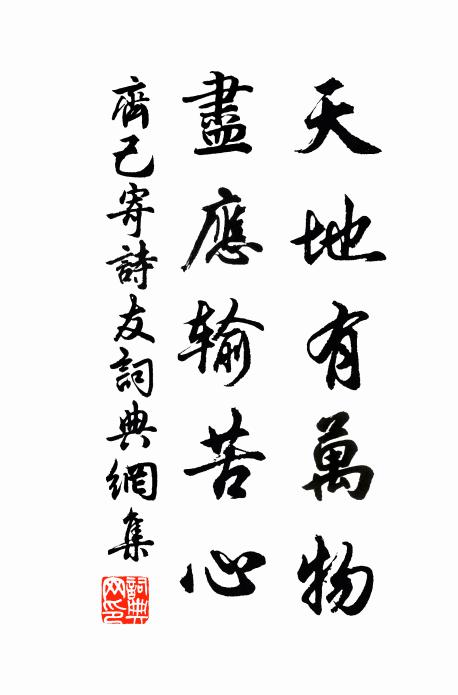 天地有萬物
盡應輸苦心
齊己寄詩友詞典網集
詞典網印